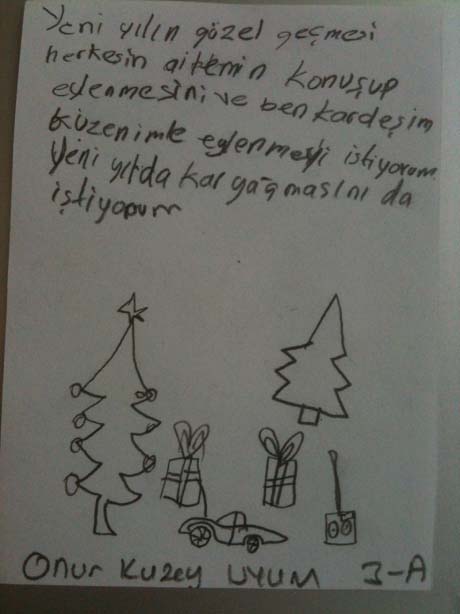 Yeni yılın güzel geçmesi
herkesin ailemin konuşup
eylenmesini ve ben kardeşim
küzenimle eylenmeyi istiyorum
Yeni yılda kar yağmasını da
istiyorum
Onur Kuzey UYUM 3-A